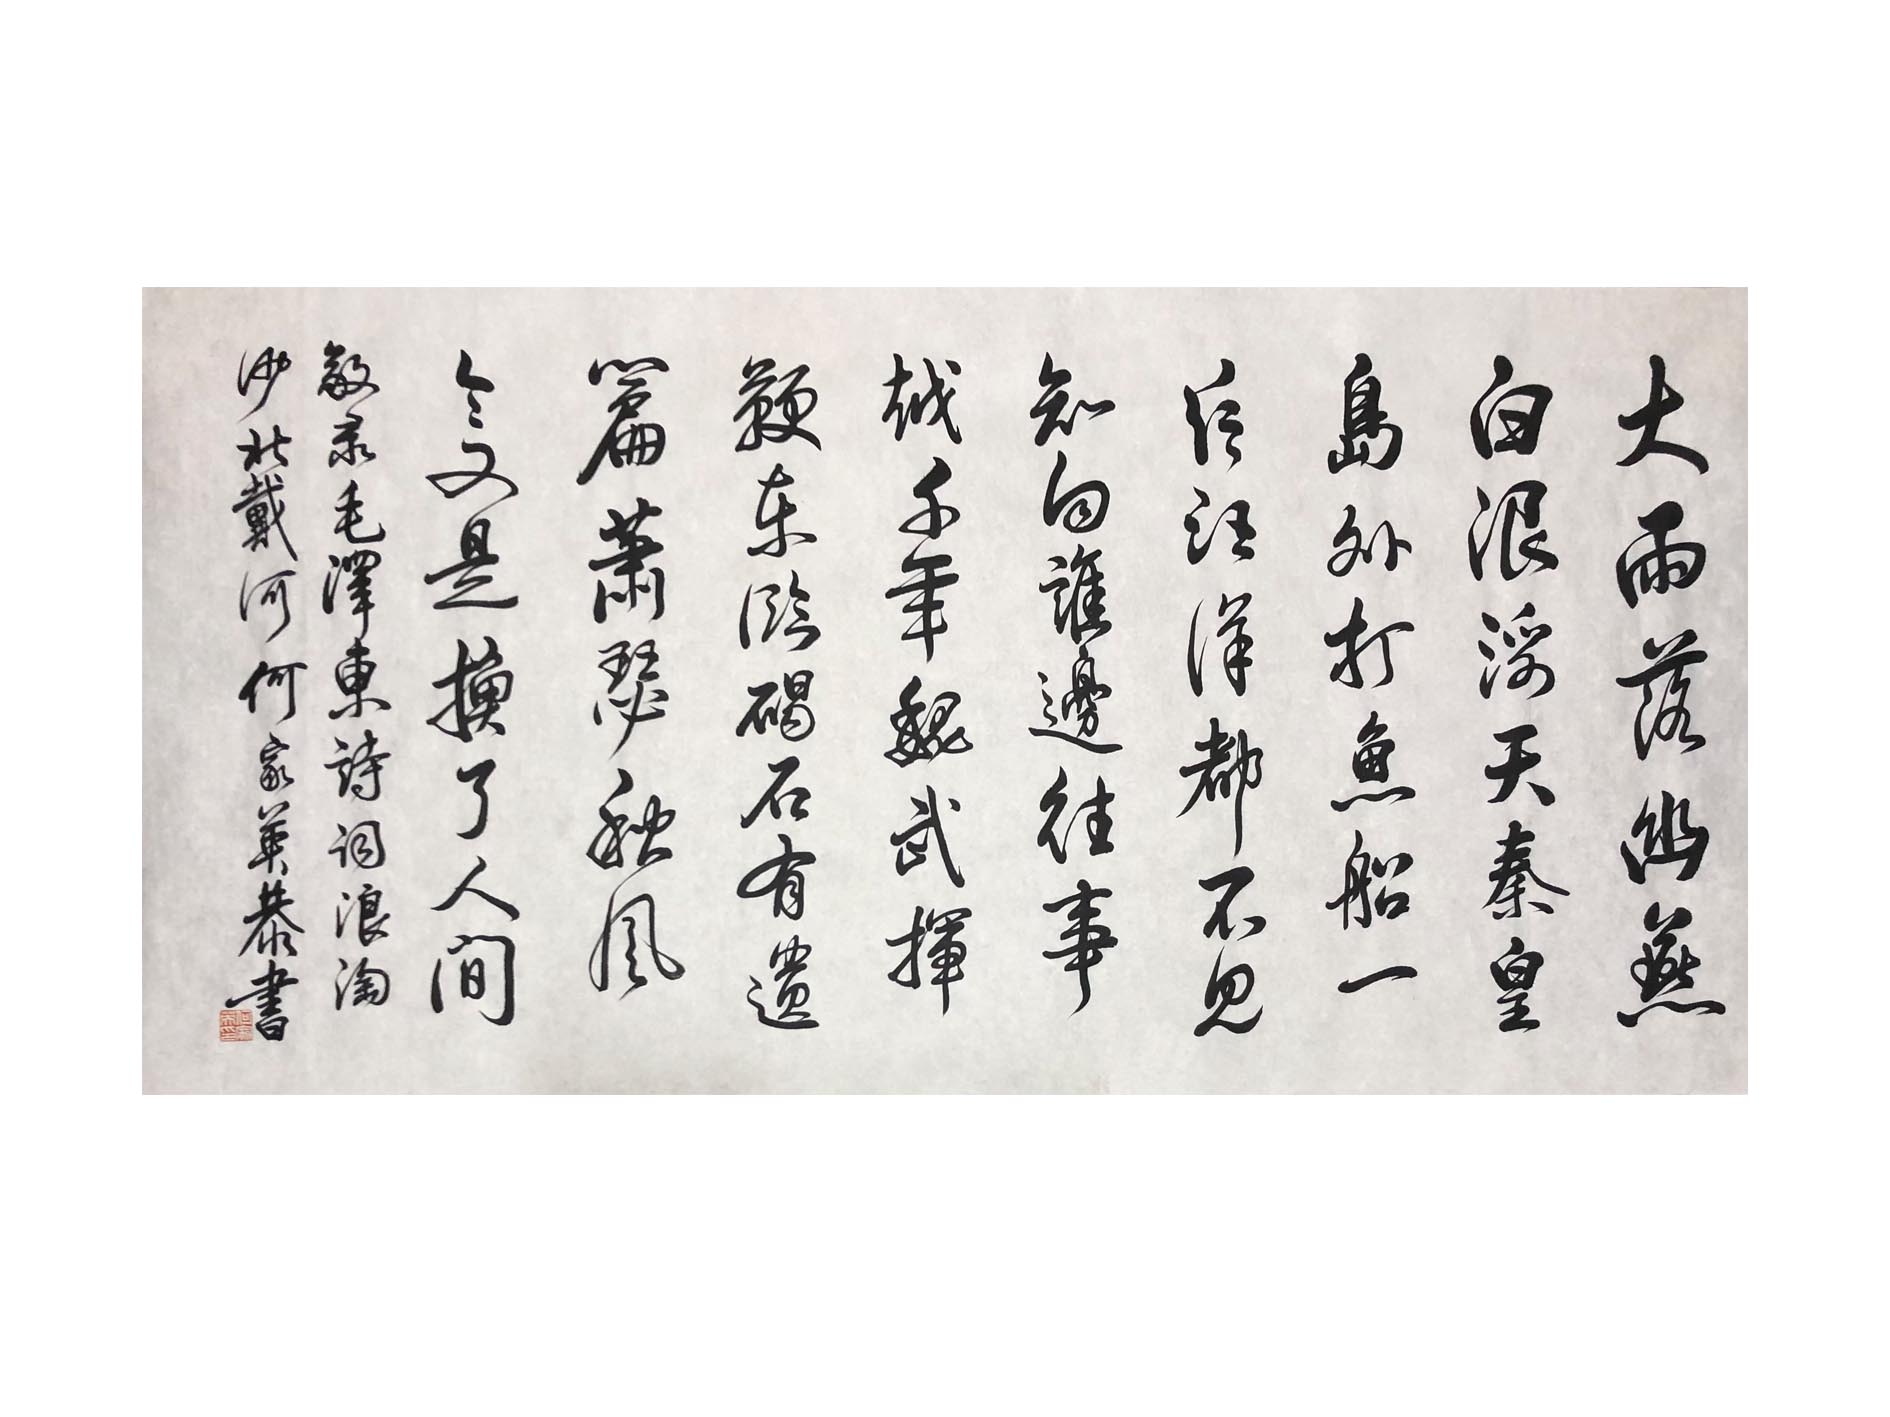 大雨落幽燕
白浪滔天秦皇
島外打魚船一
片汪洋都不見
知向誰邊往事
越千年魏武揮
鞭东临碣石有遺
篇蕭瑟秋風
今又是換了人間
敬录毛澤東詩詞浪淘
沙北戴河何家英恭書